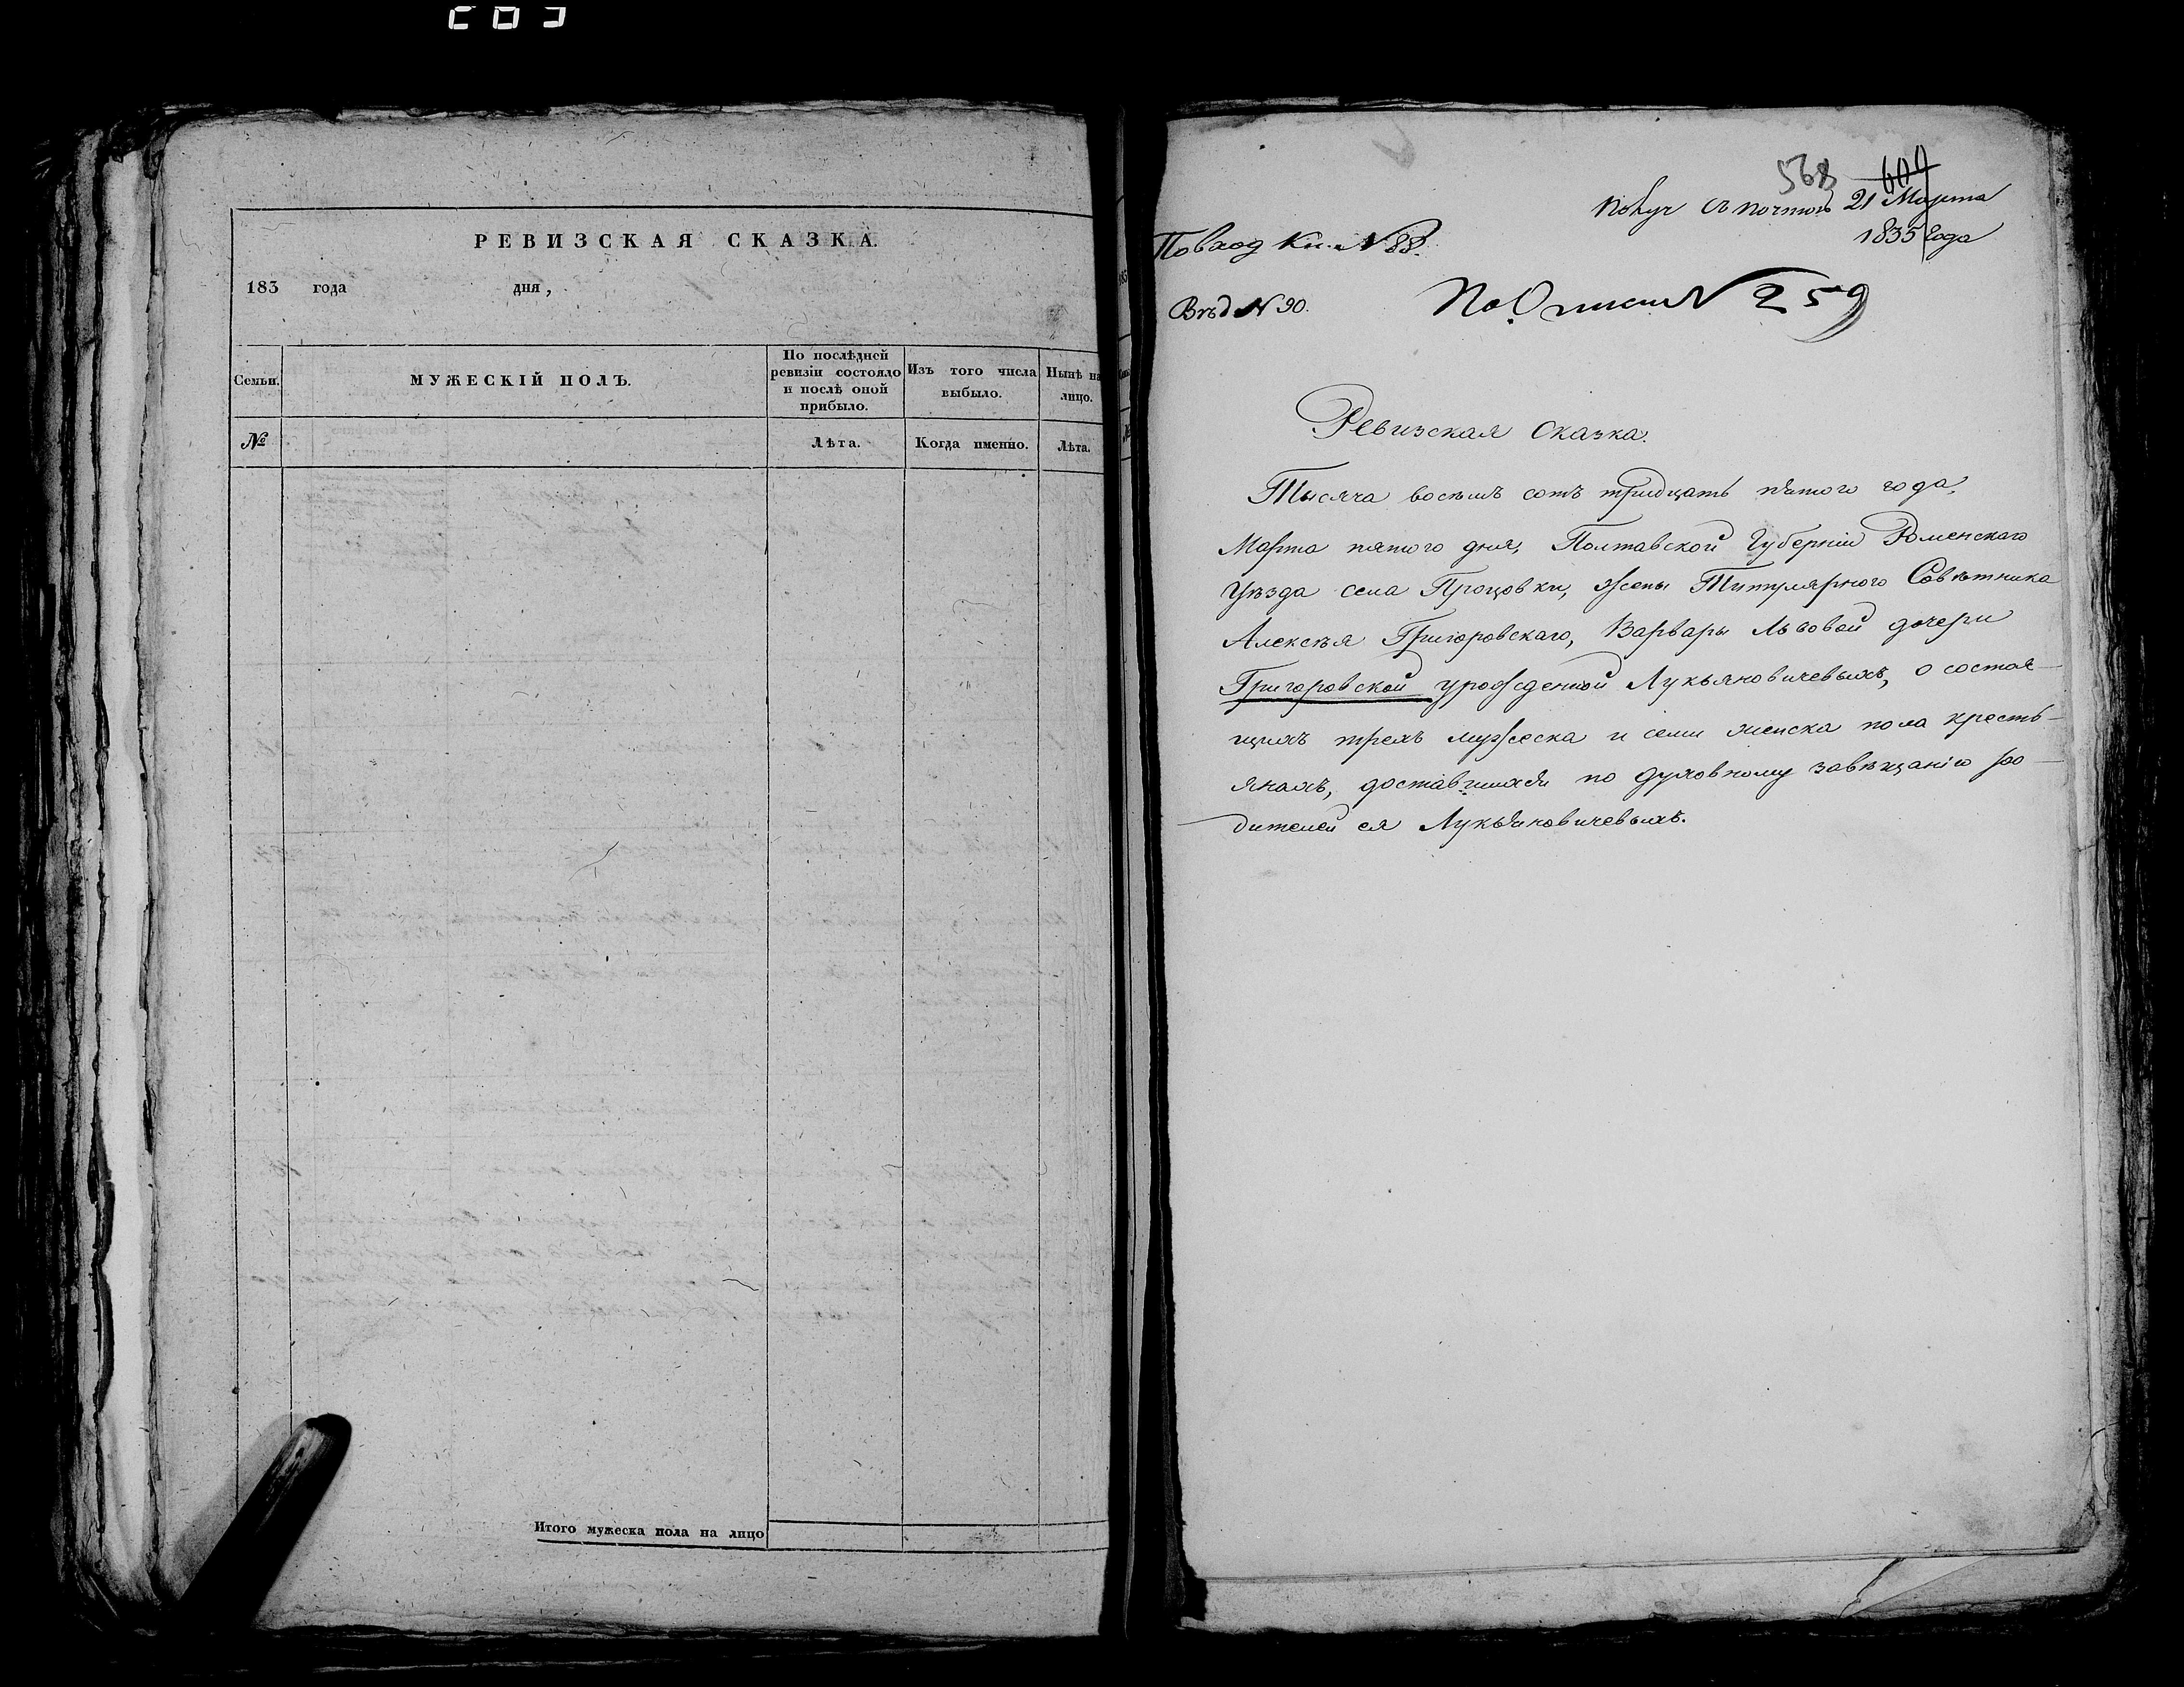 РЕВИЗСКАЯ СКАЗКА.
183 года дня,
Семьи. МУЖЕСКІЙ ПОЛЪ. По послѣдней ревизіи состояло и послѣ оной прибыло. Изъ того числа выбыло. Нынѣ на лицо.
№ Лѣта. Когда именно. Лѣта.
Итого мужеска пола на лицо
568
Получ съ почтою 21 Марта
1835 года
По вход Кн. N 88.
Вѣд N 90.
По Описи N 259
Ревизская Сказка.
Тысяча восемь сотъ тридцать пятого года,
Марта пятого дня, Полтавской Губерніи Роменскаго
Уѣзда села Процовки, жены Титулярного Совѣтника
Алексѣя Григоровскаго, Варвары Львовой дочери
Григоровской урожденной Лукьяновичевыхъ, о состоя-
щихъ трехъ мужеска и семи женска пола кресть-
янахъ, доставшихся по духовному завѣщанію ро-
дителей ея Лукьяновичевыхъ.